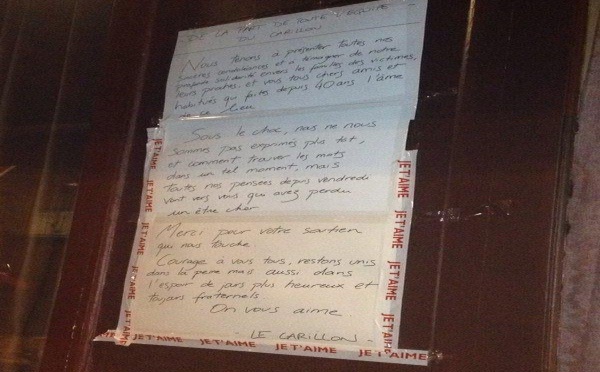 DE LA PART DE TOUTE L'EQUIPE
DU CARILLON
Nous tenons à présenter toutes nos
sincères condoléances et à témoigner de notre
profonde solidarité envers les familles des victimes,
leurs proches, et vous tous chers amis et
habitués qui faites depuis 40 ans l'âme
de ce lieu
Sous le choc, nous ne nous
sommes pas exprimés plus tôt,
et comment trouver les mots
dans un tel moment, mais
toutes nos pensées depuis vendredi
vont vers vous qui avez perdu
un être cher
Merci pour votre soutien
qui nous touche
Courage à vous tous, restons unis
dans la peine mais aussi dans
l'espoir de jours plus heureux et
toujours fraternels
On vous aime
- LE CARILLON -
JE T'AIME
JE T'AIME
JE T'AIME
JE T'AIME
JE T'AIME
JE T'AIME
JE T'AIME
JE T'AIME
JE T'AIME
JE T'AIME
JE T'AIME
JE T'AIME
JE T'AIME